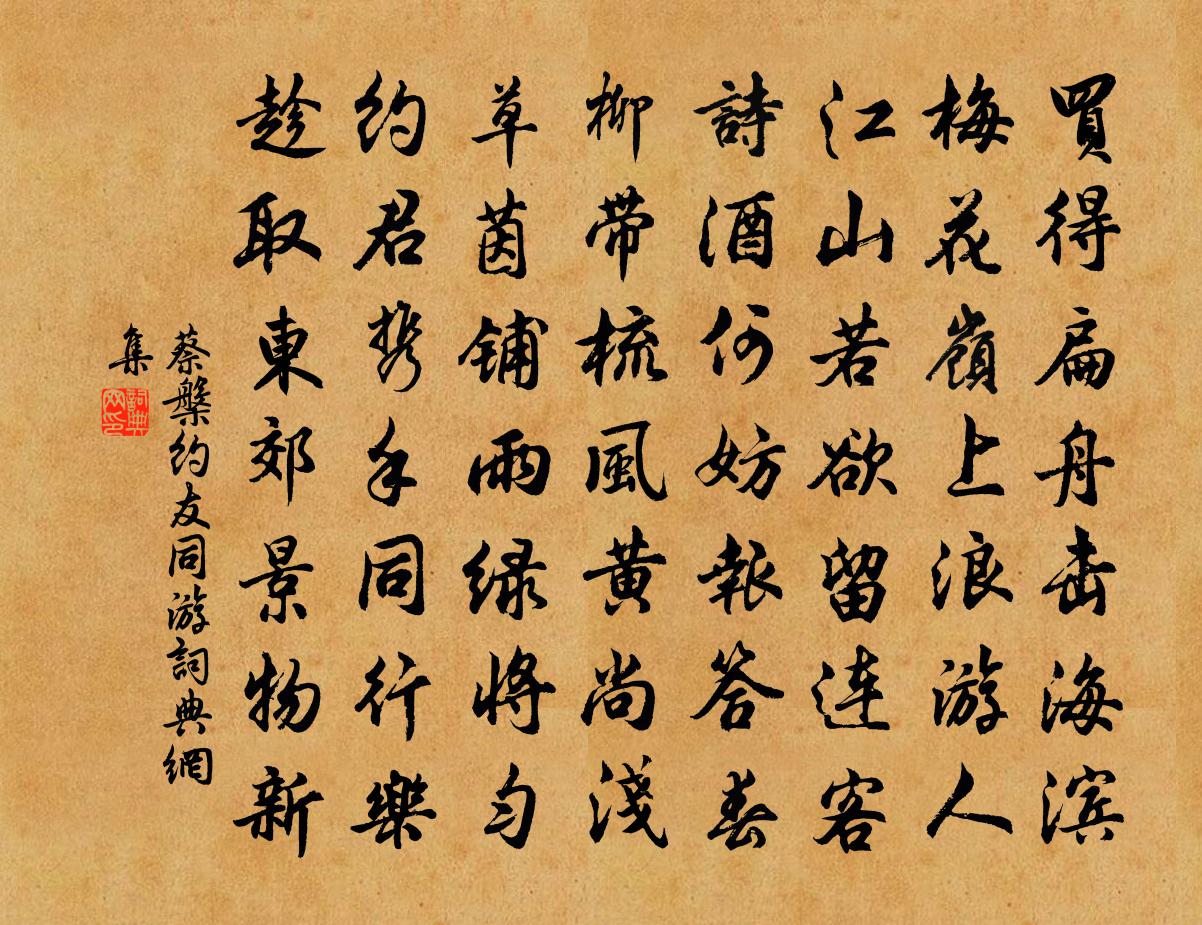 買得扁舟击海滨
梅花嶺上浪游人
江山若欲留连客
詩酒何妨報答春
柳带梳風黄尚淺
草茵铺雨绿将匀
约君携手同行樂
趁取東郊景物新
蔡槃约友同游詞典網
集
詞典
网印